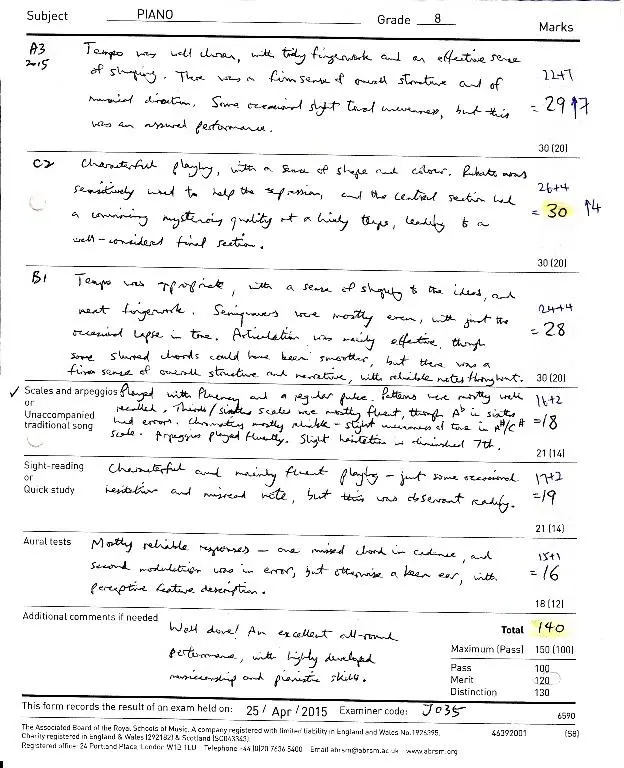 Subject PIANO Grade 8 Marks
A3 2015 Tempo was well chosen, with tidy fingerwork and an effective sense
of shaping. There was a firm sense of overall structure and of 22+7
musical direction. Some occasional slight tonal unevenness, but this = 29 ↑7
was an assured performance.
30 (20)
C2 Characterful playing, with a sense of shape and colour. Rubato was
sensitively used to help the expression, and the central section had 26+4
a convincing mysterious quality at a lively tempo, leading to a = 30 ↑4
well-considered final section.
30 (20)
B1 Tempo was appropriate, with a sense of shaping to the ideas, and
neat fingerwork. Semiquavers were mostly even, with just the 24+4
occasional lapse in tone. Articulation was mainly effective, though = 28
some slurred chords could have been smoother, but there was a
firm sense of overall structure and narrative, with reliable notes throughout. 30 (20)
✓ Scales and arpeggios Played with fluency and a regular pulse. Patterns were mostly well 16+2
or recalled. Thirds/sixths scales were mostly fluent, though A♭ in sixths
Unaccompanied had errors. Chromatics mostly reliable - slight unevenness of tone in A#/C# =18
traditional song scale. Arpeggios played fluently. Slight hesitation in diminished 7th.
21 (14)
Sight-reading Characterful and mainly fluent playing - just some occasional 17+2
or hesitation and misread note, but this was observant reading. =19
Quick study
21 (14)
Aural tests Mostly reliable responses - one missed chord in cadence, and 15+1
second modulation was in error, but otherwise a keen ear, with = 16
perceptive feature description.
18 (12)
Additional comments if needed
Well done! An excellent all-round Total 140
performance, with highly developed Maximum (Pass) 150 (100)
musicianship and pianistic skills. Pass 100
Merit 120
Distinction 130
This form records the result of an exam held on: 25 / Apr / 2015 Examiner code: J035 6590
The Associated Board of the Royal Schools of Music. A company registered with limited liability in England and Wales No. 1926395. 46392001 (58)
Charity registered in England & Wales (292182) & Scotland (SC043343)
Registered office: 24 Portland Place, London W1B 1LU Telephone +44 (0)20 7636 5400 Email abrsm@abrsm.ac.uk www.abrsm.org